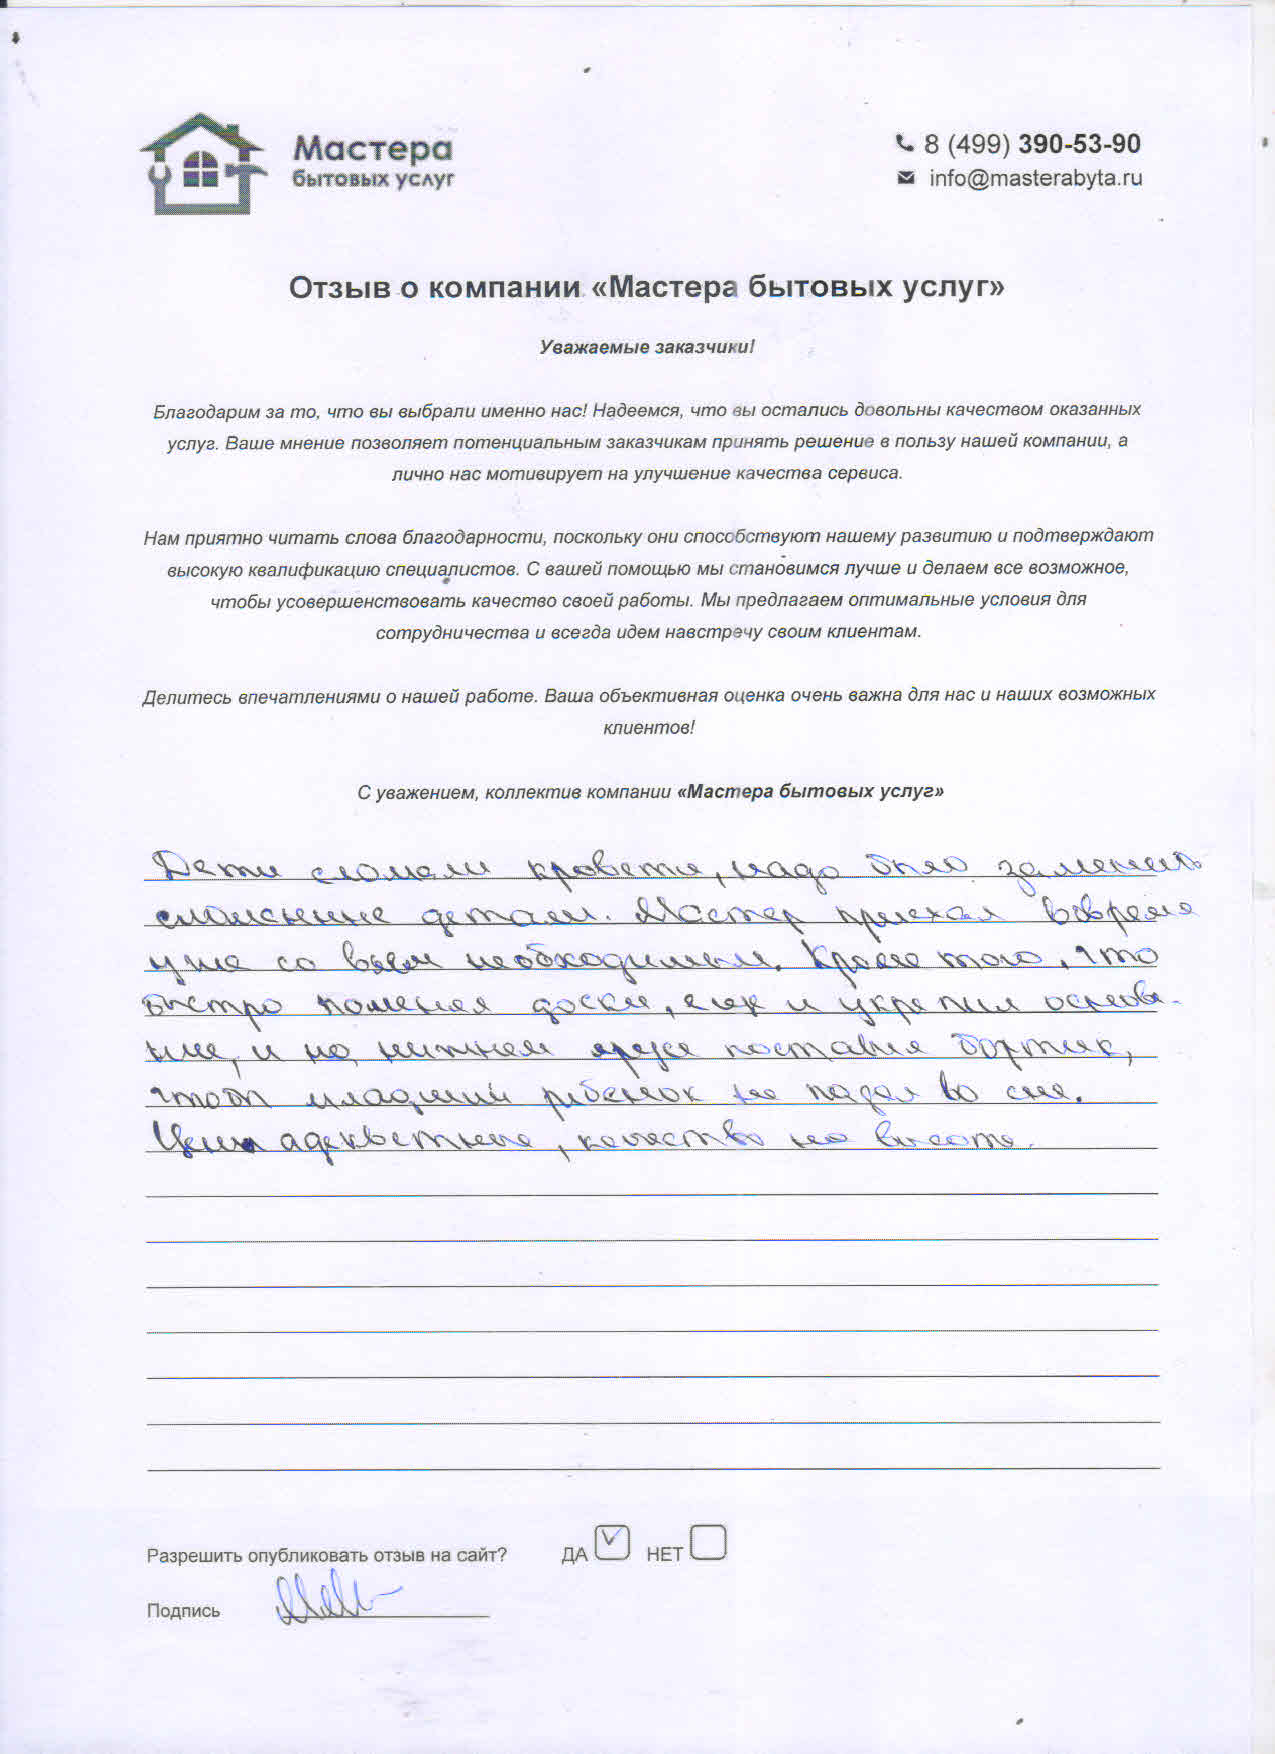 Мастера
бытовых услуг
8 (499) 390-53-90
info@masterabyta.ru
Отзыв о компании «Мастера бытовых услуг»
Уважаемые заказчики!
Благодарим за то, что вы выбрали именно нас! Надеемся, что вы остались довольны качеством оказанных
услуг. Ваше мнение позволяет потенциальным заказчикам принять решение в пользу нашей компании, а
лично нас мотивирует на улучшение качества сервиса.
Нам приятно читать слова благодарности, поскольку они способствуют нашему развитию и подтверждают
высокую квалификацию специалистов. С вашей помощью мы становимся лучше и делаем все возможное,
чтобы усовершенствовать качество своей работы. Мы предлагаем оптимальные условия для
сотрудничества и всегда идем навстречу своим клиентам.
Делитесь впечатлениями о нашей работе. Ваша объективная оценка очень важна для нас и наших возможных
клиентов!
С уважением, коллектив компании «Мастера бытовых услуг»
Дети сломали кровать, надо было заменить
сломанные детали. Мастер приехал вовремя
уже со всем необходимым. Кроме того, что
быстро поменял доски, так и укрепил основа-
ние, и на нижнем ярусе поставил бортик,
чтоб младший ребенок не падал во сне.
Цены адекватные, качество на высоте.
Разрешить опубликовать отзыв на сайт? ДА НЕТ
Подпись